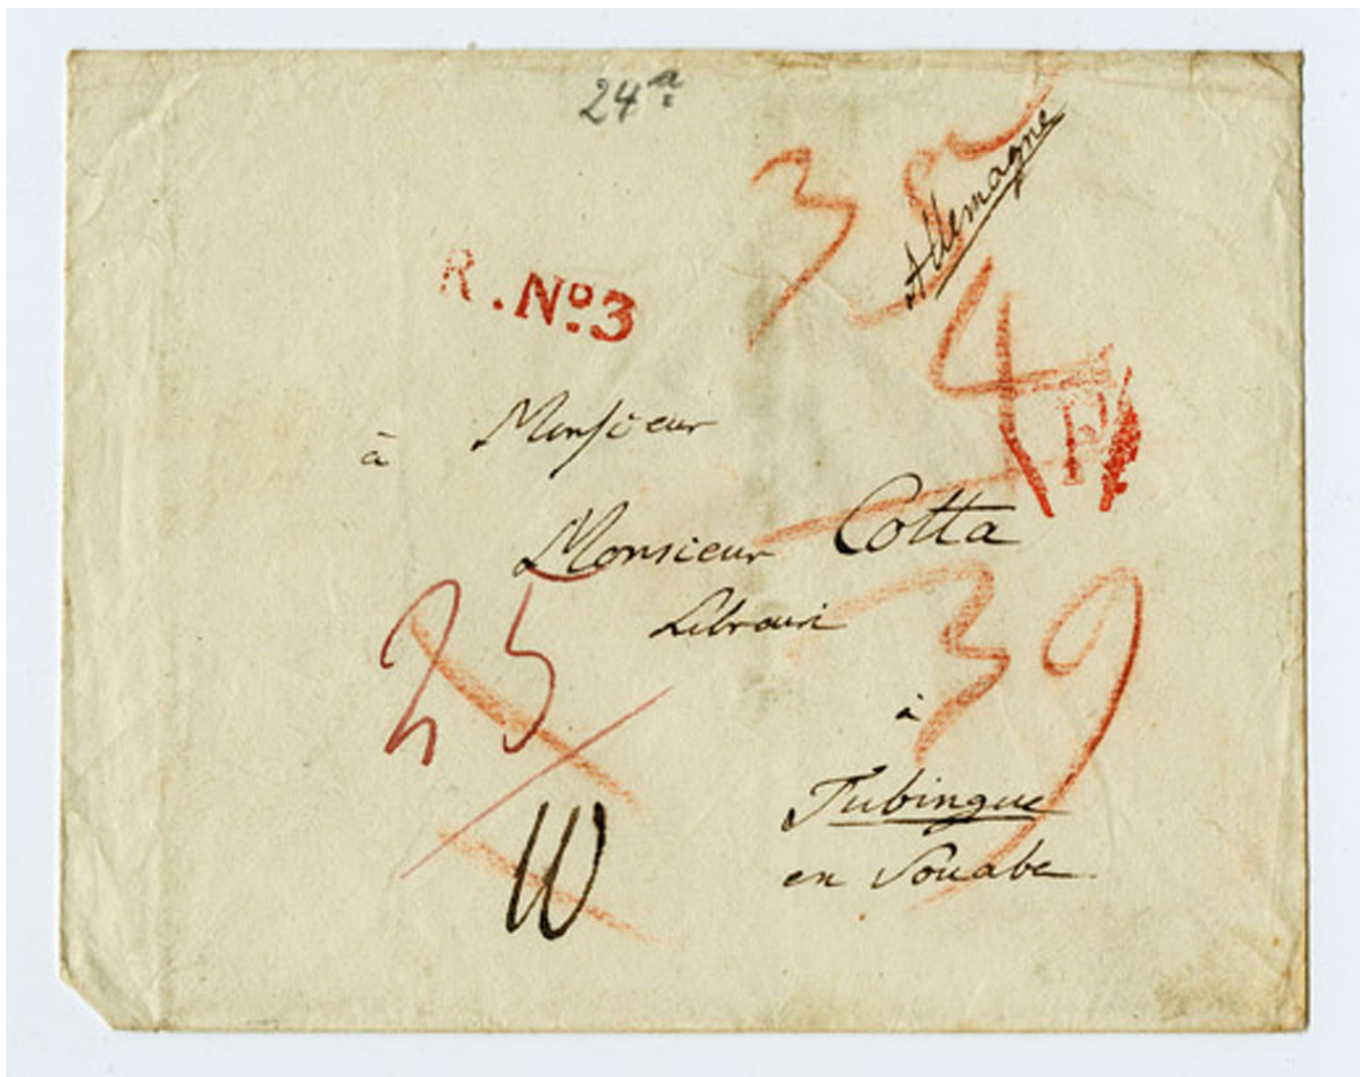 24a
35
Allemagne
R. No. 3
4
P
à Monsieur
Monsieur Cotta
Librair
25
39
à
Tubingue
en Souabe